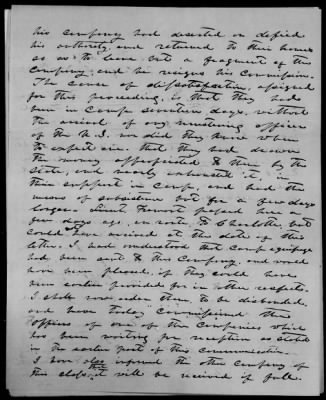 his company had deserted or defied
his authority, and returned to their homes
so as to leave but a fragment of the
company, and he resigns his commission.
The cause of dissatisfaction, assigned
for this proceeding, is that they had
been in camp seventeen days, without
the arrival of any mustering officer
of the U.S. nor did they know when
to expect one. that they had drawn
the money appropriated to them by the
state, and nearly exhausted it, in
their support in camp, and had the
means of subsistence but for a few days
longer. Lieut. passed here a
few days ago, en route to Charlotte, but
could have arrived at the date of this
letter. I had understood that camp equipage
had been sent to this company, and would
have been pleased, if they could have
been earlier provided for in other respects.
I shall now order them, to be disbanded,
and have today commissioned the
officers of one of the companies which
has been waiting for reception as stated
in the earlier part of this communication.
I have also informed the other company of
this class, that it will be received if full.